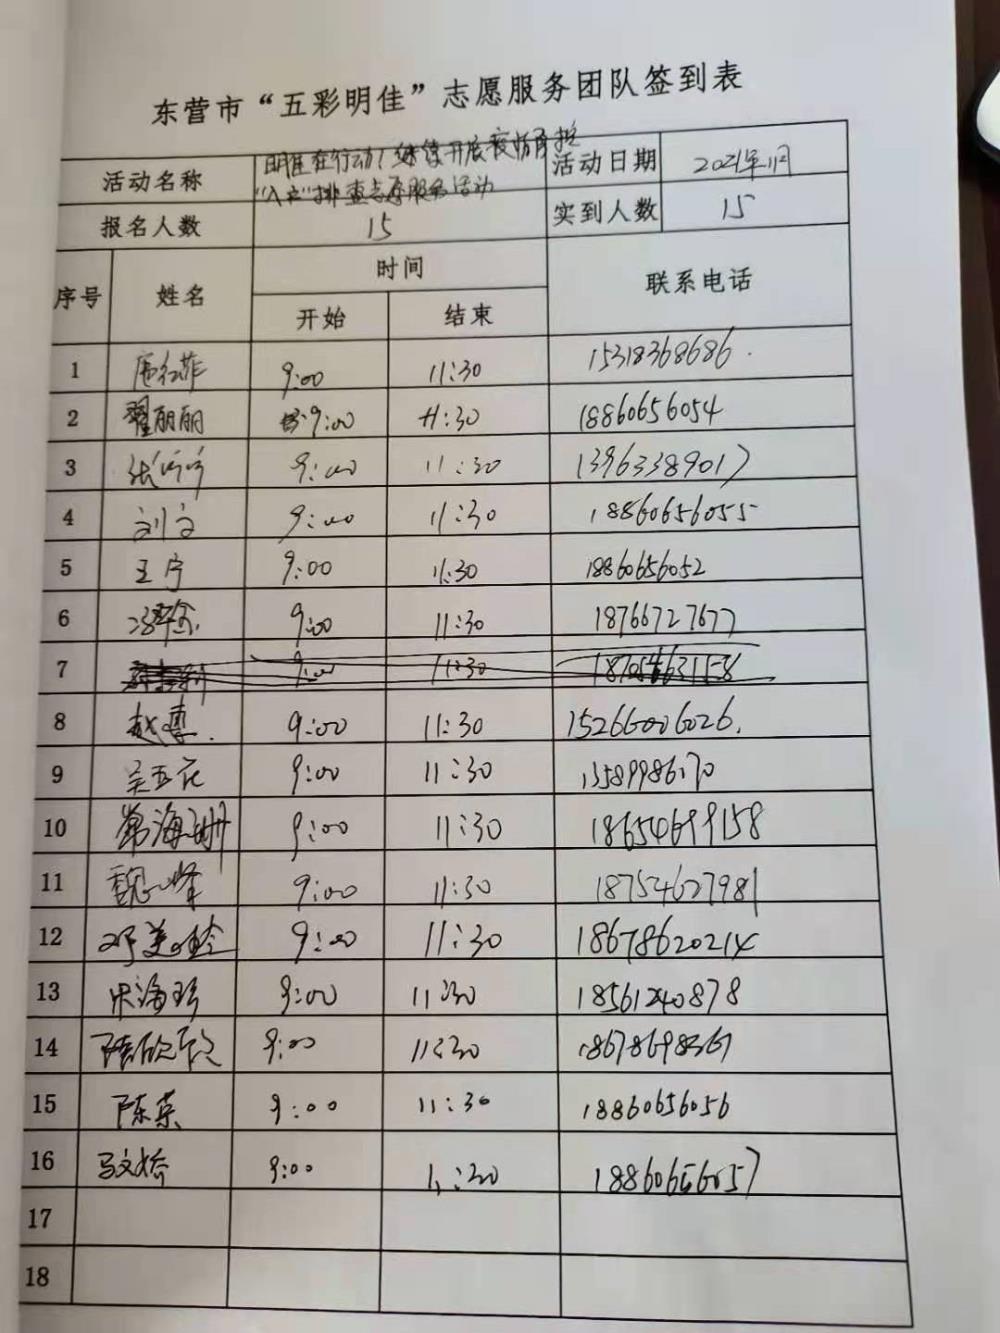 东营市“五彩明佳”志愿服务团队签到表
活动名称 明佳在行动！继续开展疫情防控 活动日期 2021年11月
“入户”排查志愿服务活动
报名人数 15 实到人数 15
序号 姓名 时间 联系电话
开始 结束
1 9:00 11:30 15318368686
2 翟丽丽 9:00 11:30 18860656054
3 9:00 11:30 13963389017
4 刘文 9:00 11:30 18860656055
5 王宁 9:00 11:30 18860656052
6 9:00 11:30 18766727677
7 9:00 11:30
8 9:00 11:30 15266006026
9 9:00 11:30 13589986170
10 常海珊 9:00 11:30 18654699158
11 9:00 11:30 18754627981
12 邓美玲 9:00 11:30 18678620214
13 宋海珍 9:00 11:30 18561240878
14 陈欣欣 9:00 11:30
15 陈英 9:00 11:30 18860656056
16 马文娇 9:00 11:30 18860656057
17
18